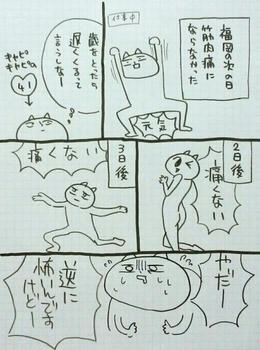 福岡の次の日
筋肉痛に
ならなかった
仕事中
元気
歳をとったら
遅くくるって
言うしなー
キャピ
キャピ
41
2日後
痛くない
3日後
痛くない
やだー
逆に
怖いんです
けどー